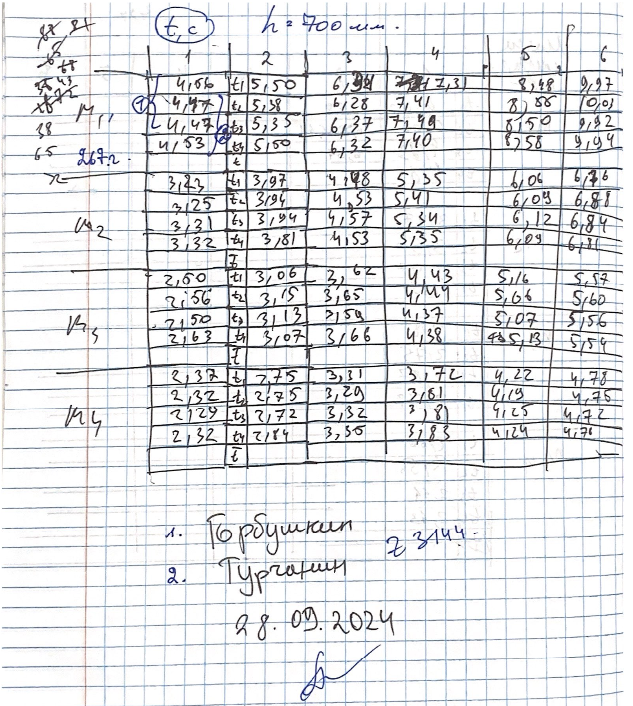 t, c h = 700 мм.
1 2 3 4 5 6
4,56 t₁ 5,50 6,31 7,31 8,48 9,97
M₁, 4,47 t₂ 5,38 6,28 7,41 8,55 10,01
4,47 t₃ 5,35 6,37 7,49 8,50 9,92
4,53 5,50 6,32 7,40 8,58 9,94
267 г. t
3,23 t₁ 3,97 4,48 5,35 6,06 6,76
3,25 t₂ 3,94 4,53 5,41 6,09 6,88
M₂ 3,31 t₃ 3,94 4,57 5,34 6,12 6,84
3,32 t₄ 3,81 4,53 5,35 6,09 6,81
t
2,50 t₁ 3,06 3,62 4,43 5,16 5,57
2,56 t₂ 3,15 3,65 4,44 5,06 5,60
M₃ 2,50 t₃ 3,13 3,59 4,37 5,07 5,56
2,63 t₄ 3,07 3,66 4,38 5,13 5,54
t
2,37 t₁ 2,75 3,31 3,72 4,22 4,78
2,32 t₂ 2,75 3,29 3,81 4,19 4,75
M₄ 2,29 t₃ 2,72 3,32 3,81 4,25 4,72
2,32 t₄ 2,84 3,35 3,83 4,24 4,76
t
1. Горбушкин
z 3144.
2. Турчанин
28.09.2024